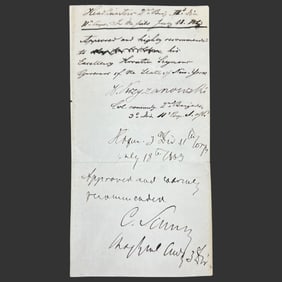 Head Quarters 2d Brig. 3d Div.
11th Corps In the field July 18, 1863
Approved and highly recommended
to his
Excellency Horatio Seymour
Governor of the State of New York
W. Krzyzanowski
Col. comdg 2d Brigade
3d Div 11th Corps
Hdqrs. 3d Div 11th Corps
July 19th 1863
Approved and
recommended
C. Schurz
Maj Genl Comdg 3d Div